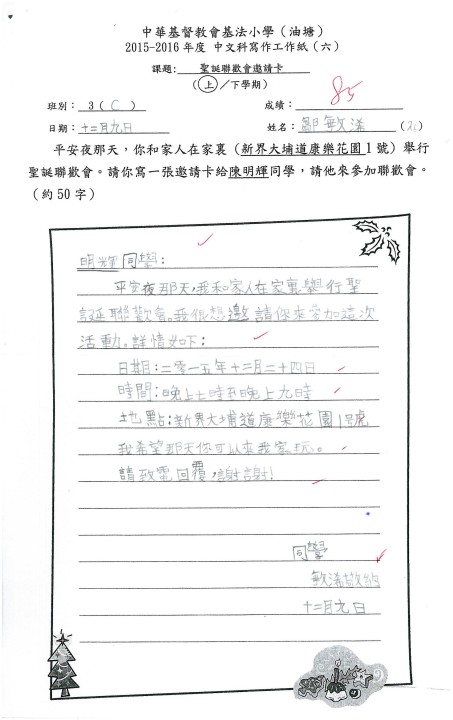 中華基督教會基法小學（油塘）
2015-2016年度 中文科寫作工作紙（六）
課題： 聖誕聯歡會邀請卡
（上/下學期）
班別： 3（C） 成績： 85
日期：十二月九日 姓名：鄒敏漾
平安夜那天，你和家人在家裏（新界大埔道康樂花園1號）舉行
聖誕聯歡會。請你寫一張邀請卡給陳明輝同學，請他來參加聯歡會。
（約50字）
明輝同學：
平安夜那天，我和家人在家裏舉行聖
誕聯歡會。我很想邀請你來參加這次
活動。詳情如下：
日期：二零一五年十二月二十四日
時間：晚上七時至晚上九時
地點：新界大埔道康樂花園1號
我希望那天你可以來我家玩。
請致電回覆，謝謝！
同學
敏漾敬約
十二月九日